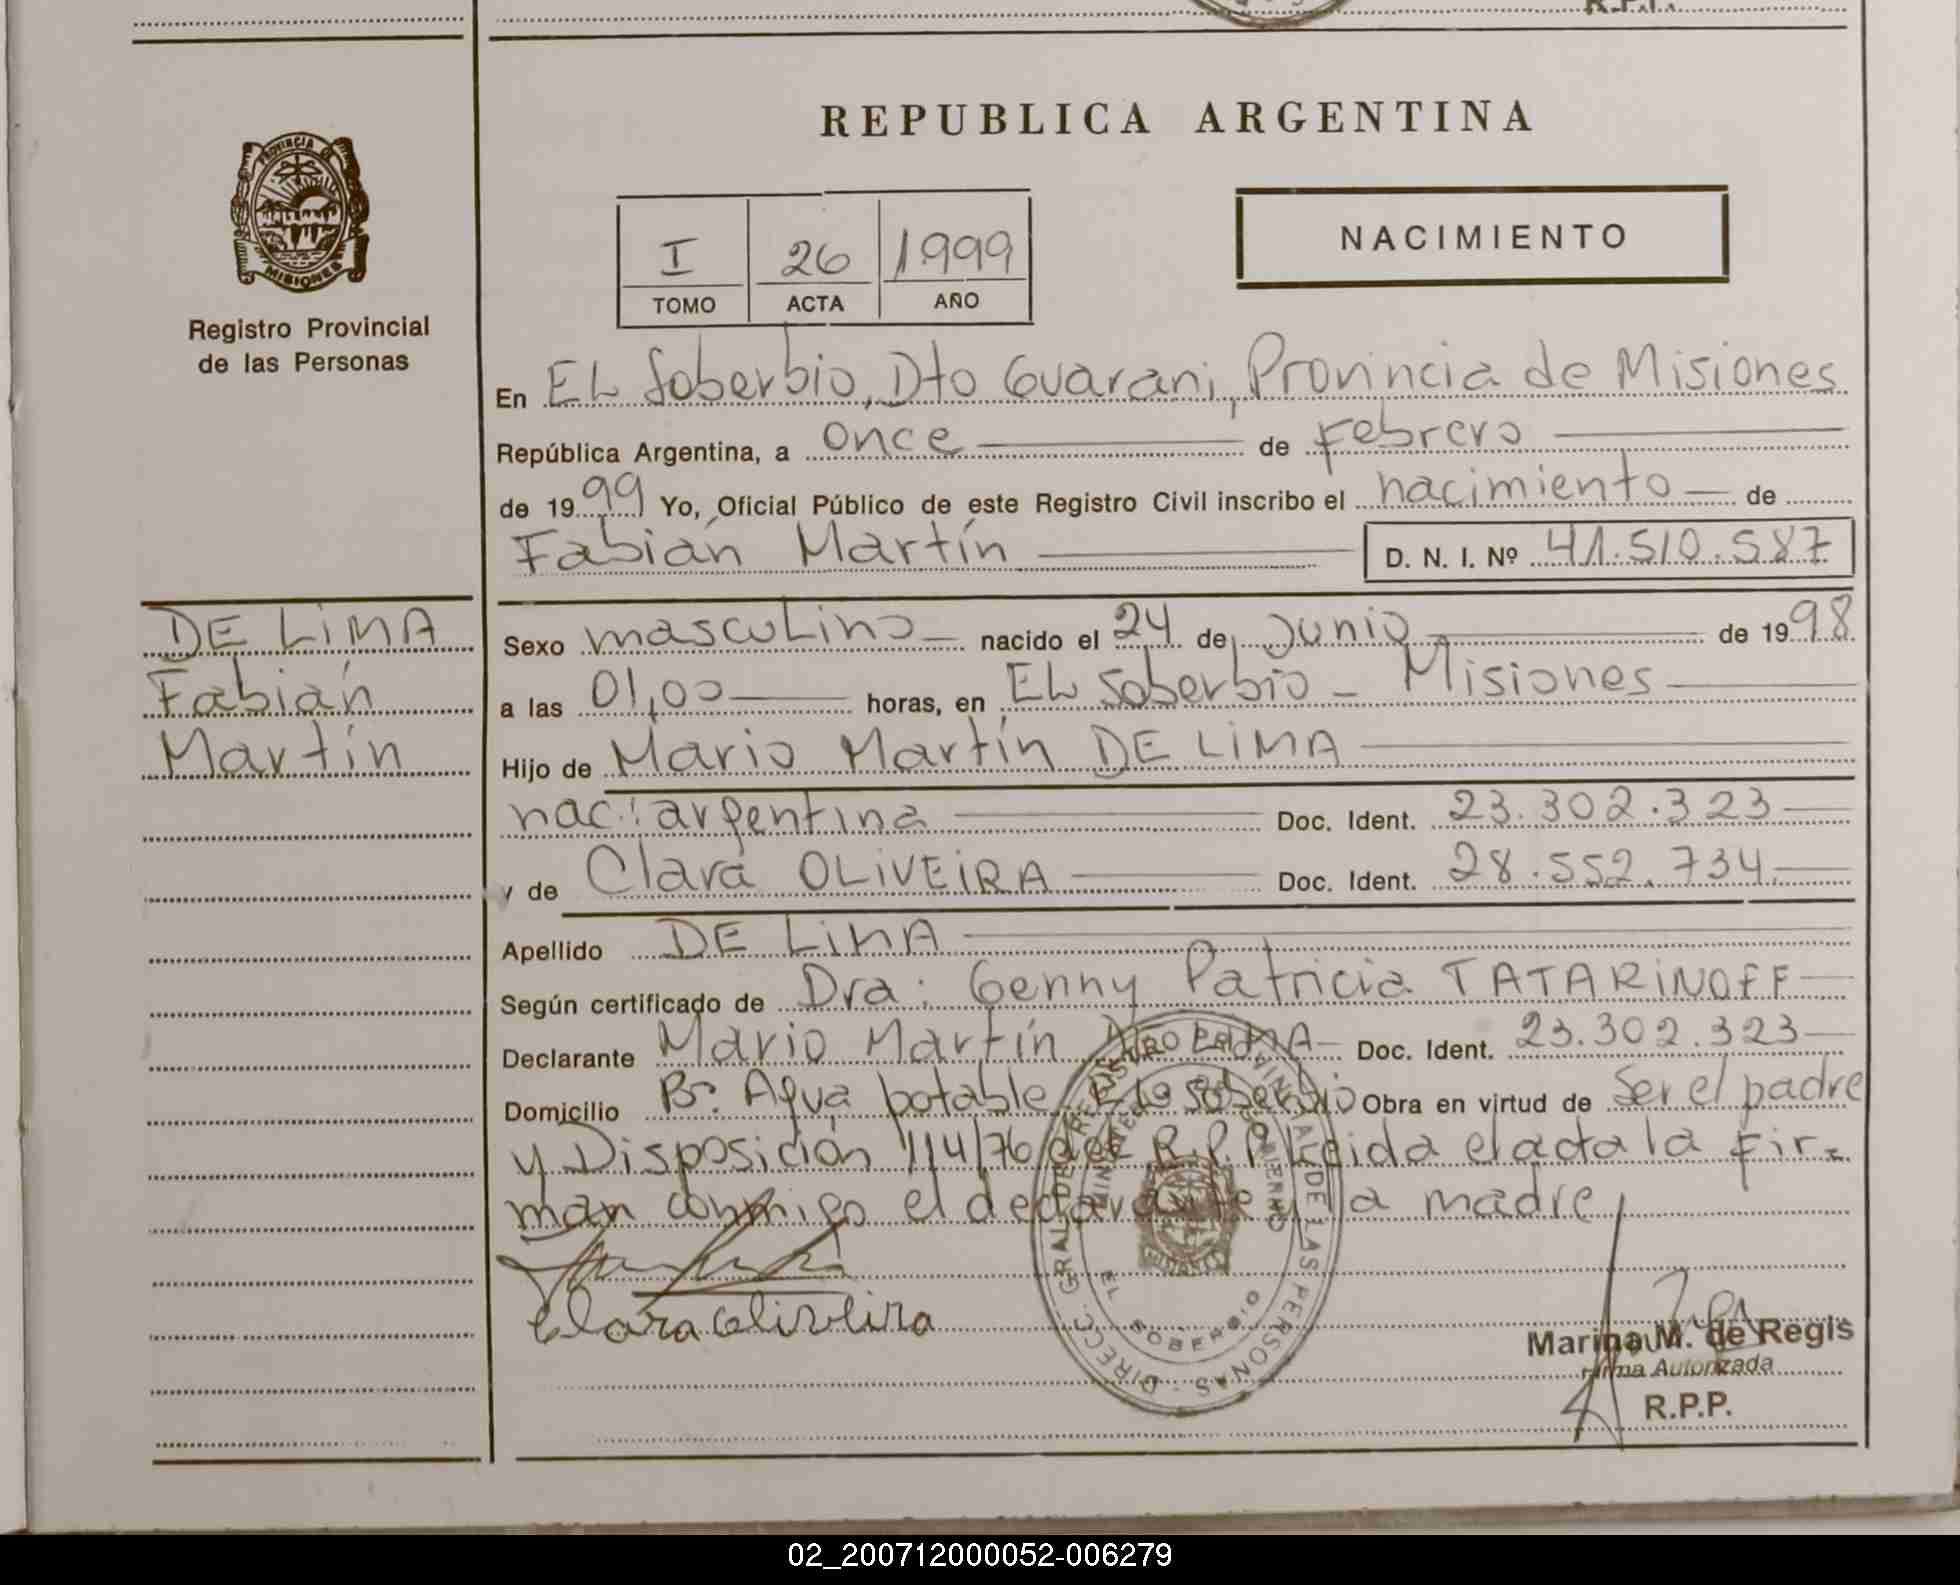 R.P.P.
REPUBLICA ARGENTINA
PROVINCIA DE
MISIONES
Registro Provincial
de las Personas
I 26 1999
TOMO ACTA AÑO
NACIMIENTO
En EL Soberbio, Dto Guarani, Provincia de Misiones
República Argentina, a once de Febrero
de 1999 Yo, Oficial Público de este Registro Civil inscribo el nacimiento de
Fabián Martín D. N. I. Nº 41.510.587
DE LIMA
Fabián
Martín
Sexo masculino nacido el 24 de Junio de 1998
a las 01,00 horas, en EL Soberbio - Misiones
Hijo de Mario Martín DE LIMA
nac: argentina Doc. Ident. 23.302.323
y de Clara OLIVEIRA Doc. Ident. 28.552.734
Apellido DE LIMA
Según certificado de Dra: Genny Patricia TATARINOFF
Declarante Mario Martín DE LIMA Doc. Ident. 23.302.323
Domicilio Bº. Agua potable, EL Soberbio Obra en virtud de Ser el padre
y Disposición 114/76 del R.P.P. Leida el acta la fir=
man conmigo el declarante y la madre
Clara Oliveira
DIRECC. GRAL. DEL REGISTRO PROVINCIAL DE LAS PERSONAS
EL SOBERBIO
Marina M. de Regis
Firma Autorizada
R.P.P.
02_200712000052-006279